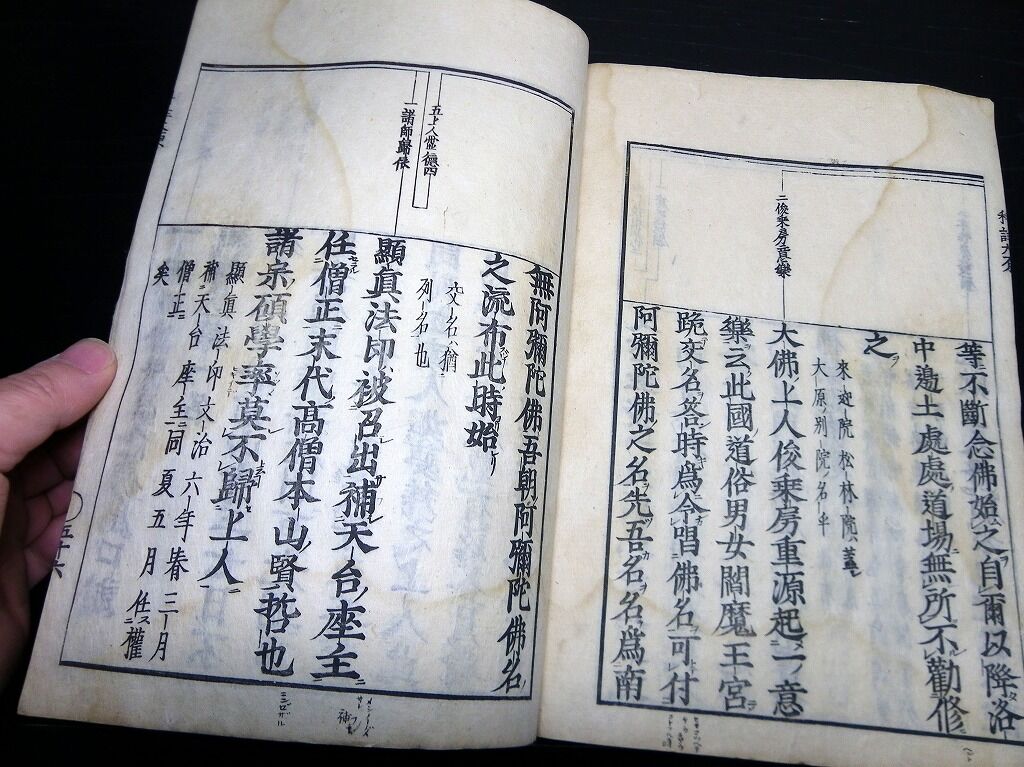 二俊乗房意樂
等不斷念佛始之自爾以降洛
中邊土處處道場無所不勸修
之
來迎院松林院蓋
大原別院名乎
大佛上人俊乗房重源起一意
樂云此國道俗男女閻魔王宮
跪交名答時爲令唱佛名可付
阿彌陀佛之名先吾名名爲南
五上人徳四
一諸師歸依
無阿彌陀佛吾朝阿彌陀佛名
之流布此時始
交名猶
列名也
顯眞法印被召出補天台座主
任僧正末代高僧本山賢哲也
諸宗碩學率莫不歸上人
顯眞法印文治六年春三月
補天台座主同夏五月任權
僧正
矣
五十六